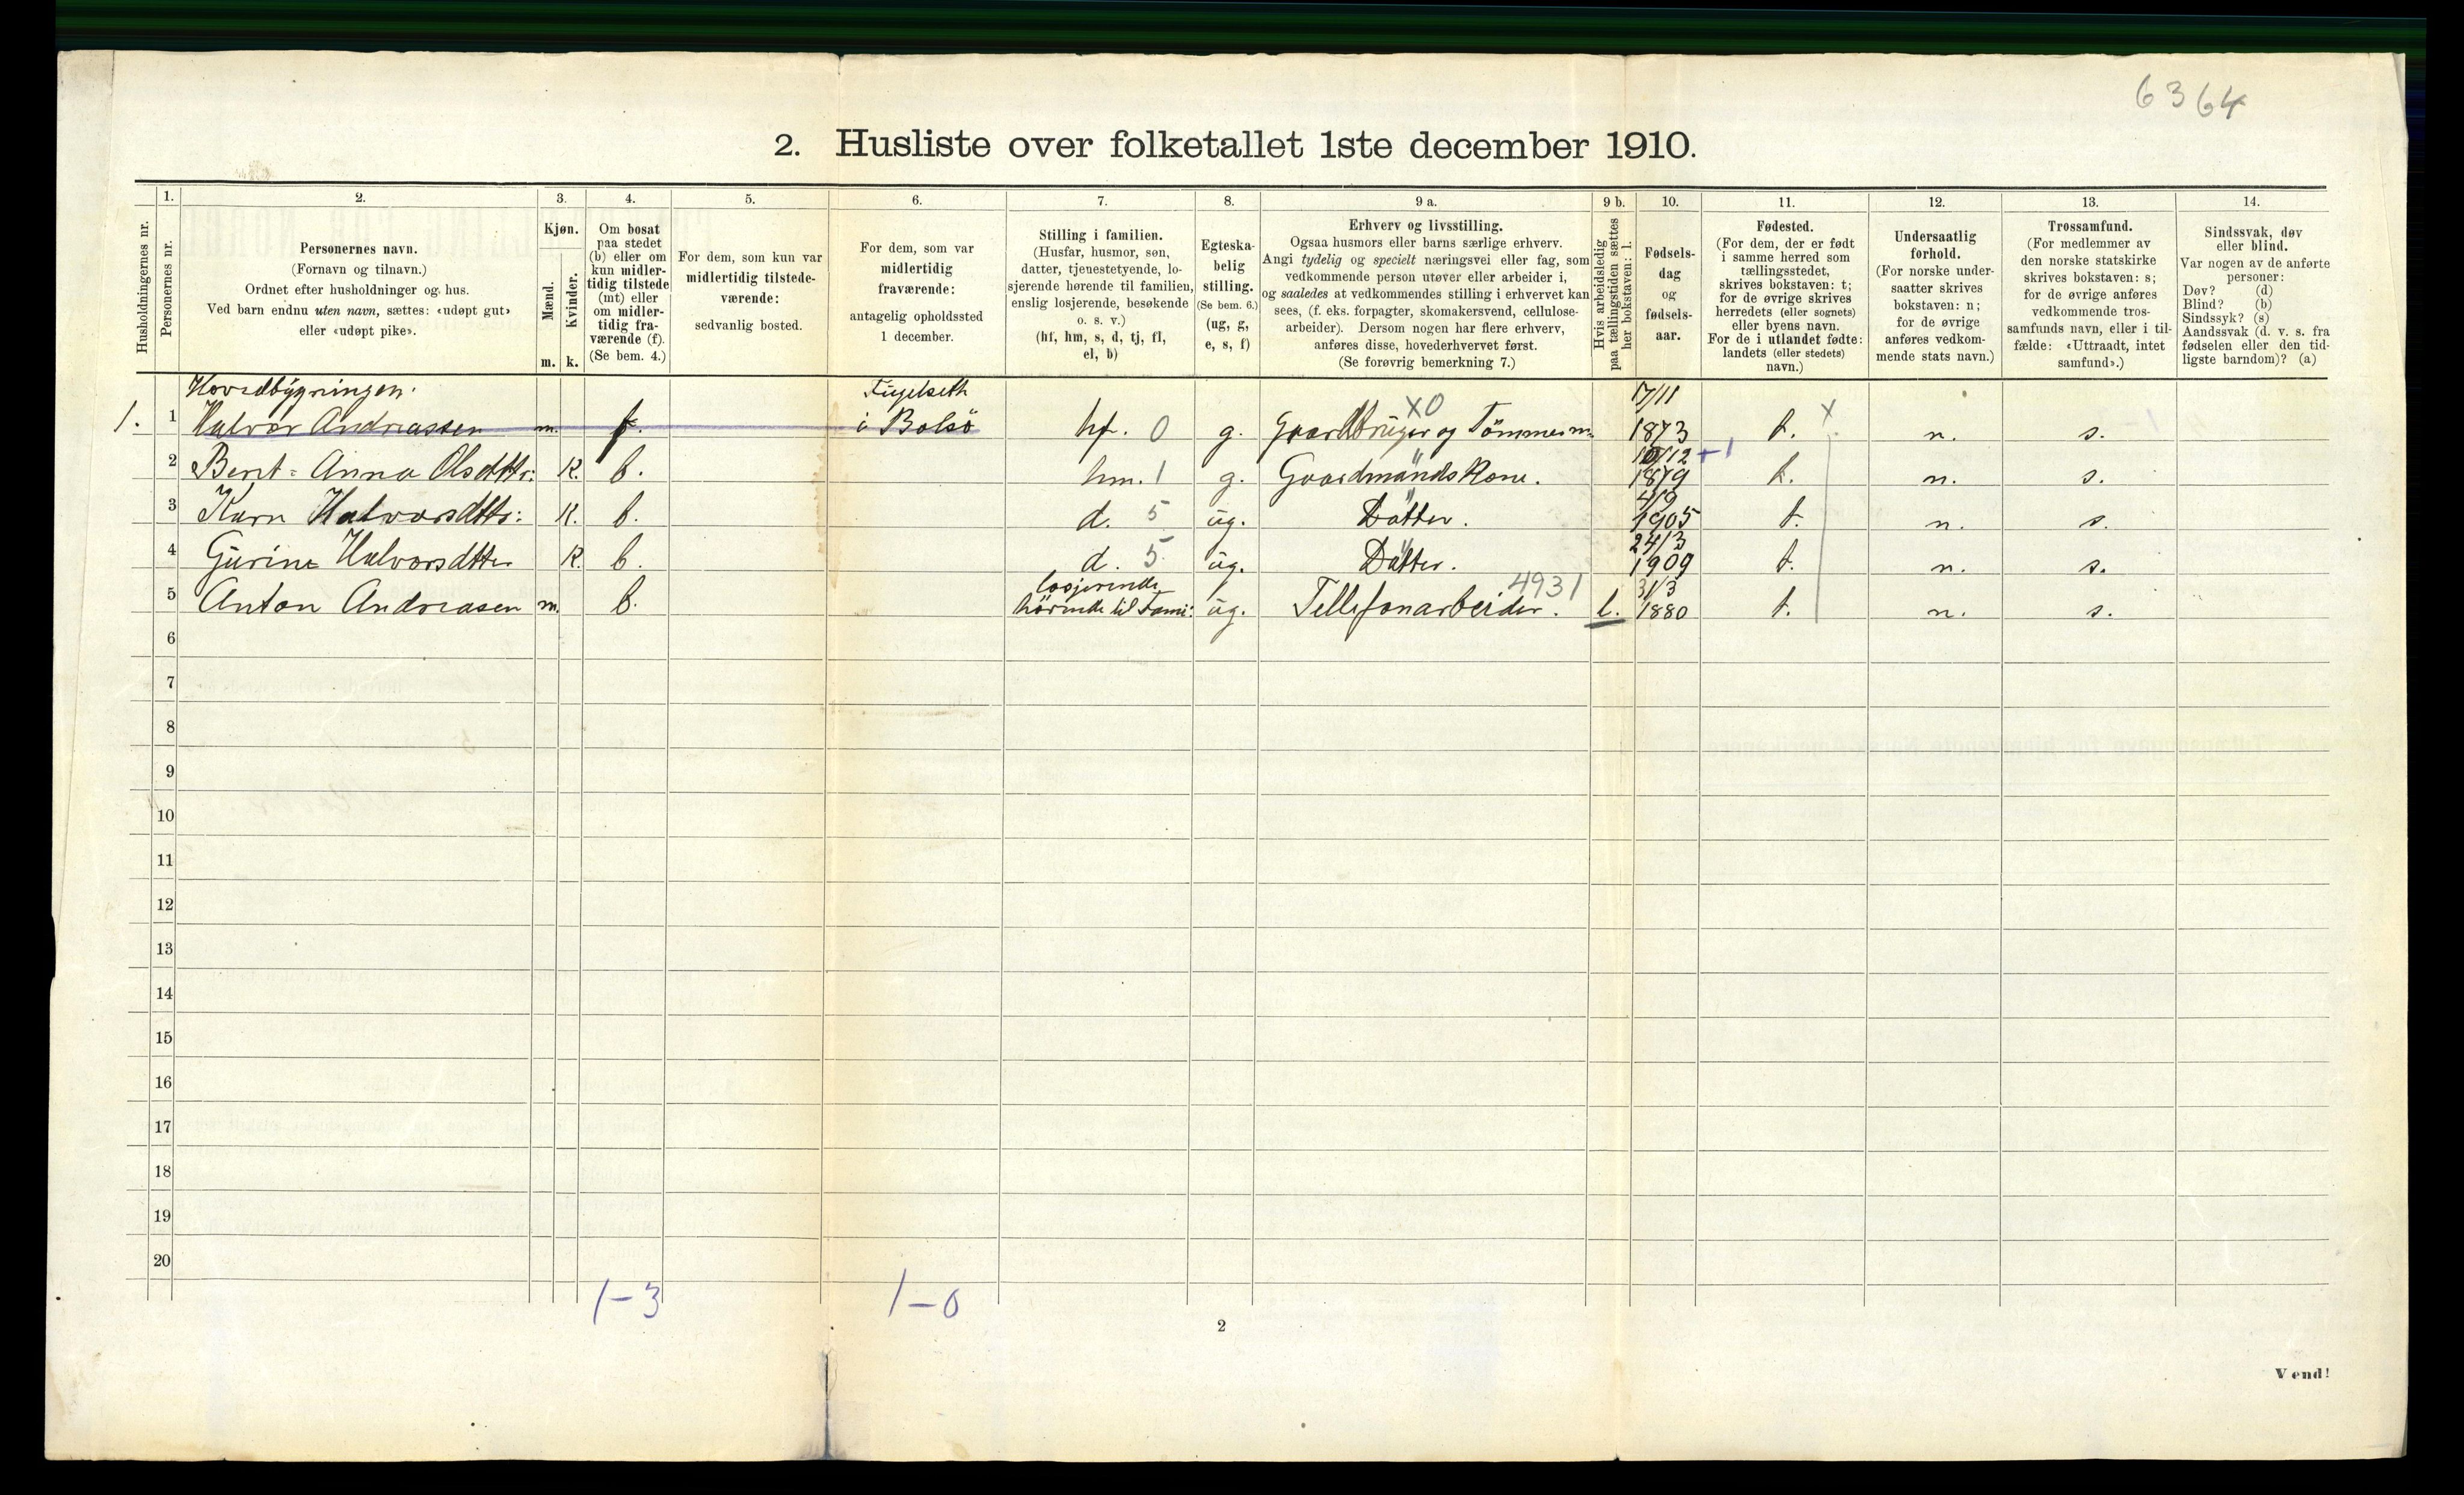 6364
2. Husliste over folketallet 1ste december 1910.
Husholdningernes nr.
1.
Personernes nr.
2.
Personernes navn.
(Fornavn og tilnavn.)
Ordnet efter husholdninger og hus.
Ved barn endnu uten navn, sættes: «udøpt gut»
eller «udøpt pike».
3.
Kjøn.
Mænd.
Kvinder.
m. k.
4.
Om bosat
paa stedet
(b) eller om
kun midler-
tidig tilstede
(mt) eller
om midler-
tidig fra-
værende (f).
(Se bem. 4.)
5.
For dem, som kun var
midlertidig tilstede-
værende:
sedvanlig bosted.
6.
For dem, som var
midlertidig
fraværende:
antagelig opholdssted
1 december.
7.
Stilling i familien.
(Husfar, husmor, søn,
datter, tjenestetyende, lo-
sjerende hørende til familien,
enslig losjerende, besøkende
o. s. v.)
(hf, hm, s, d, tj, fl,
el, b)
8.
Egteska-
belig
stilling.
(Se bem. 6.)
(ug, g,
e, s, f)
9 a.
Erhverv og livsstilling.
Ogsaa husmors eller barns særlige erhverv.
Angi tydelig og specielt næringsvei eller fag, som
vedkommende person utøver eller arbeider i,
og saaledes at vedkommendes stilling i erhvervet kan
sees, (f. eks. forpagter, skomakersvend, cellulose-
arbeider). Dersom nogen har flere erhverv,
anføres disse, hovederhvervet først.
(Se forøvrig bemerkning 7.)
9 b.
Hvis arbeidsledig
paa tællingstiden sættes
her bokstaven: l.
10.
Fødsels-
dag
og
fødsels-
aar.
11.
Fødested.
(For dem, der er født
i samme herred som
tællingsstedet,
skrives bokstaven: t;
for de øvrige skrives
herredets (eller sognets)
eller byens navn.
For de i utlandet fødte:
landets (eller stedets)
navn.)
12.
Undersaatlig
forhold.
(For norske under-
saatter skrives
bokstaven: n;
for de øvrige
anføres vedkom-
mende stats navn.)
13.
Trossamfund.
(For medlemmer av
den norske statskirke
skrives bokstaven: s;
for de øvrige anføres
vedkommende tros-
samfunds navn, eller i til-
fælde: «Uttraadt, intet
samfund».)
14.
Sindssvak, døv
eller blind.
Var nogen av de anførte
personer:
Døv? (d)
Blind? (b)
Sindssyk? (s)
Aandssvak (d. v. s. fra
fødselen eller den tid-
ligste barndom)? (a)
Hovedbygningen. 17/11
1. 1 Halvor Andreassen m. f. i Bolsö hf. 0 g. Gaardbruger og Tömmerm. X0 1873 t. x n. s.
10/12 +1
2 Berit-Anna Olsdttr: K. b. hm. 1 g. Gaardmands Kone. 1879 t. n. s.
4/9
3 Karn Halvorsdttr: K. b. d. 5 ug. Datter. 1905 t. n. s.
24/3
4 Gurine Halvorsdtter K. b. d. 5 ug. Datter. 1909 t. n. s.
losjerende 4931 31/3
5 Anton Andreasen m. b. hörende til Fami: ug. Tellefonarbeider. l. 1880 t. n. s.
6
7
8
9
10
11
12
13
14
15
16
17
18
19
20
1-3 1-0
2
Vend!